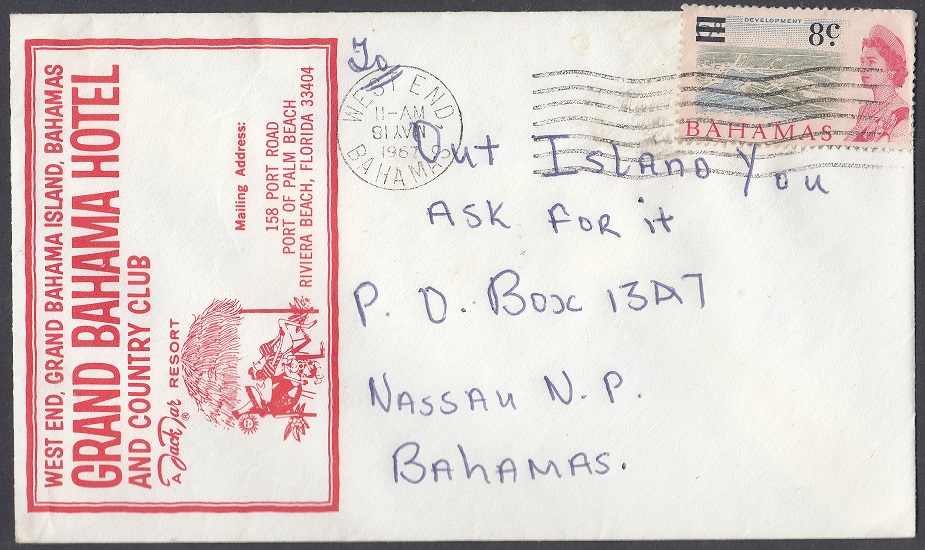 WEST END, GRAND BAHAMA ISLAND, BAHAMAS
GRAND BAHAMA HOTEL
AND COUNTRY CLUB
A Jack Tar ® RESORT
Mailing Address:
158 PORT ROAD
PORT OF PALM BEACH
RIVIERA BEACH, FLORIDA 33404
To
WEST END
11-AM
1967
BAHAMAS
DEVELOPMENT
8c
BAHAMAS
Out Island You
Ask For it
P. O. Box 13A7
Nassau N. P.
Bahamas.